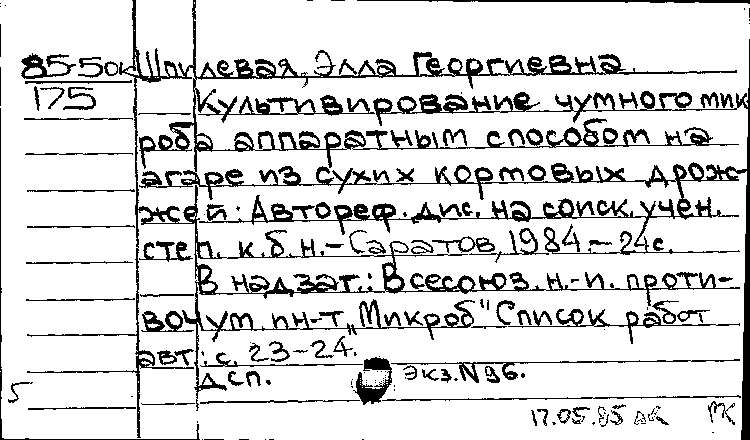 85-5ок Шпилевая, Элла Георгиевна.
175 Культивирование чумного мик
роба аппаратным способом на
агаре из сухих кормовых дрож-
жей: Автореф. дис. на соиск. учен.
степ. к.б.н.- Саратов, 1984.- 24с.
В надзаг.: Всесоюз. н.-и. проти-
вочум. ин-т „Микроб" Список работ
авт.: с. 23-24.
Дсп. Экз. N 96.
5
17.05.85